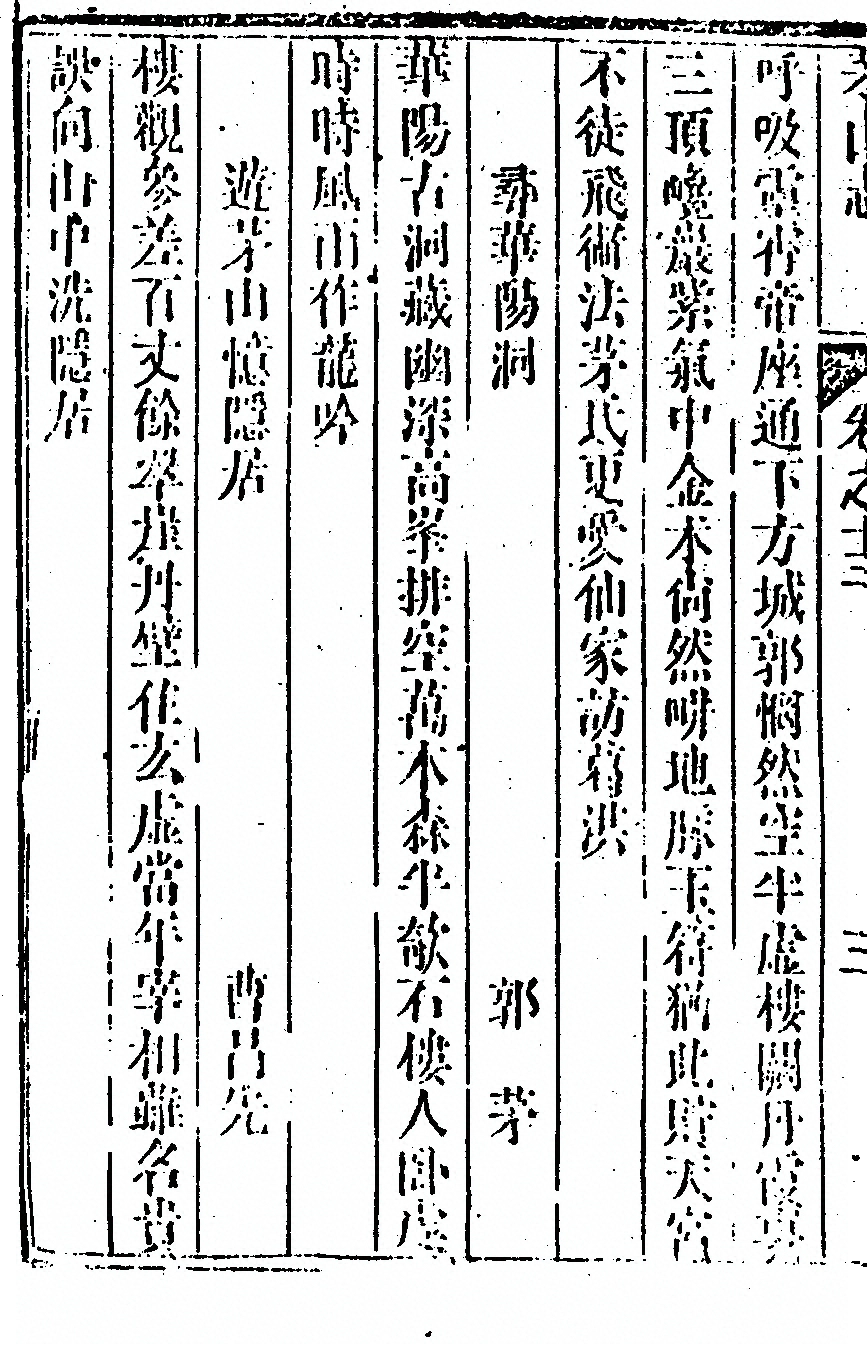 茅山志 卷之十三 二
呼吸靈香帝座通下方城郭惘然空半虛樓闕丹霞裏
三頂巉巖紫氣中金木尚然呀地脈玉符猶此貯天宮
不徒飛術法茅氏更愛仙家訪葛洪
尋華陽洞 郭 茅
華陽古洞藏幽深高峯排空萬木森半欹石樓人臥處
時時風雨作龍吟
遊茅山憶隱居 曹昌先
樓觀參差百丈餘翠崖丹壁隹玄虛當年宰相雖名貴
誤向山中洗隱居